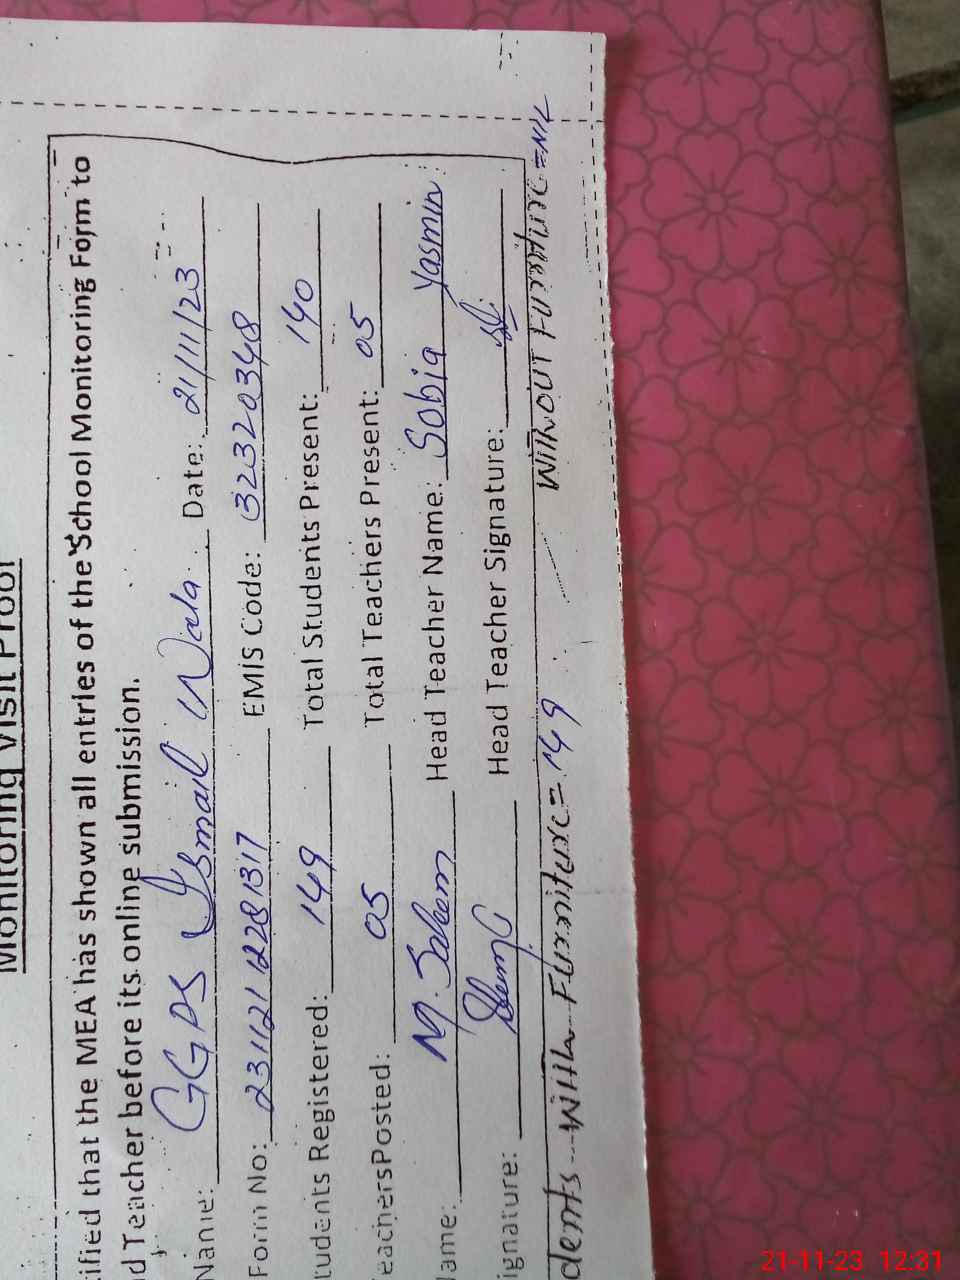 Monitoring Visit Proof
tified that the MEA has shown all entries of the School Monitoring Form to
d Teacher before its online submission.
Name: GGPS Ismail Wala Date: 21/11/23
Form No: 231121 12281317 EMIS Code: 32320348
tudents Registered: 149 Total Students Present: 140
eachersPosted: 05 Total Teachers Present: 05
lame: M. Saleem Head Teacher Name: Sobia Yasmin
ignature: Head Teacher Signature:
dents With Furniture = 149 Without Furniture = NIL
21-11-23 12:31